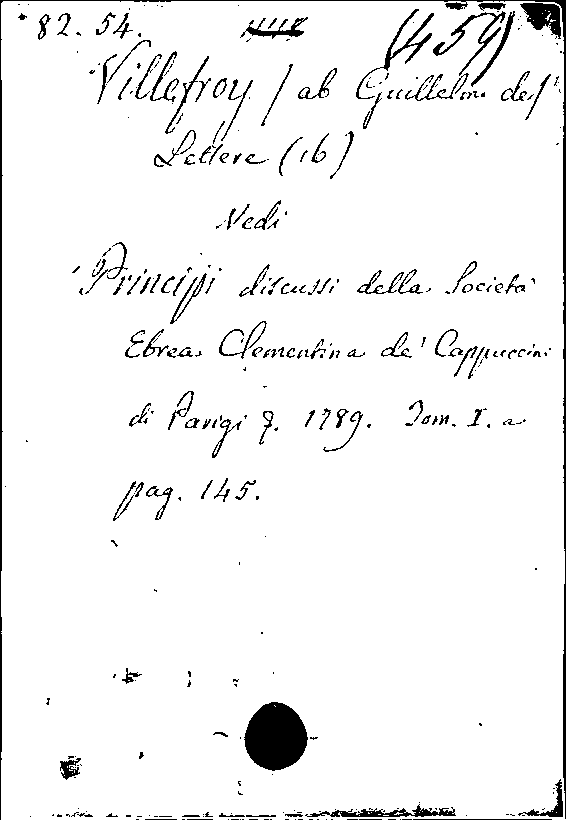 82. 54. (459)
Villefroy / ab Guillelm. de /
Lettere (16)
Vedi
Principj discussi della Società
Ebrea Clementina de' Cappuccini
di Parigi 8. 1789. Tom. I. a
pag. 145.